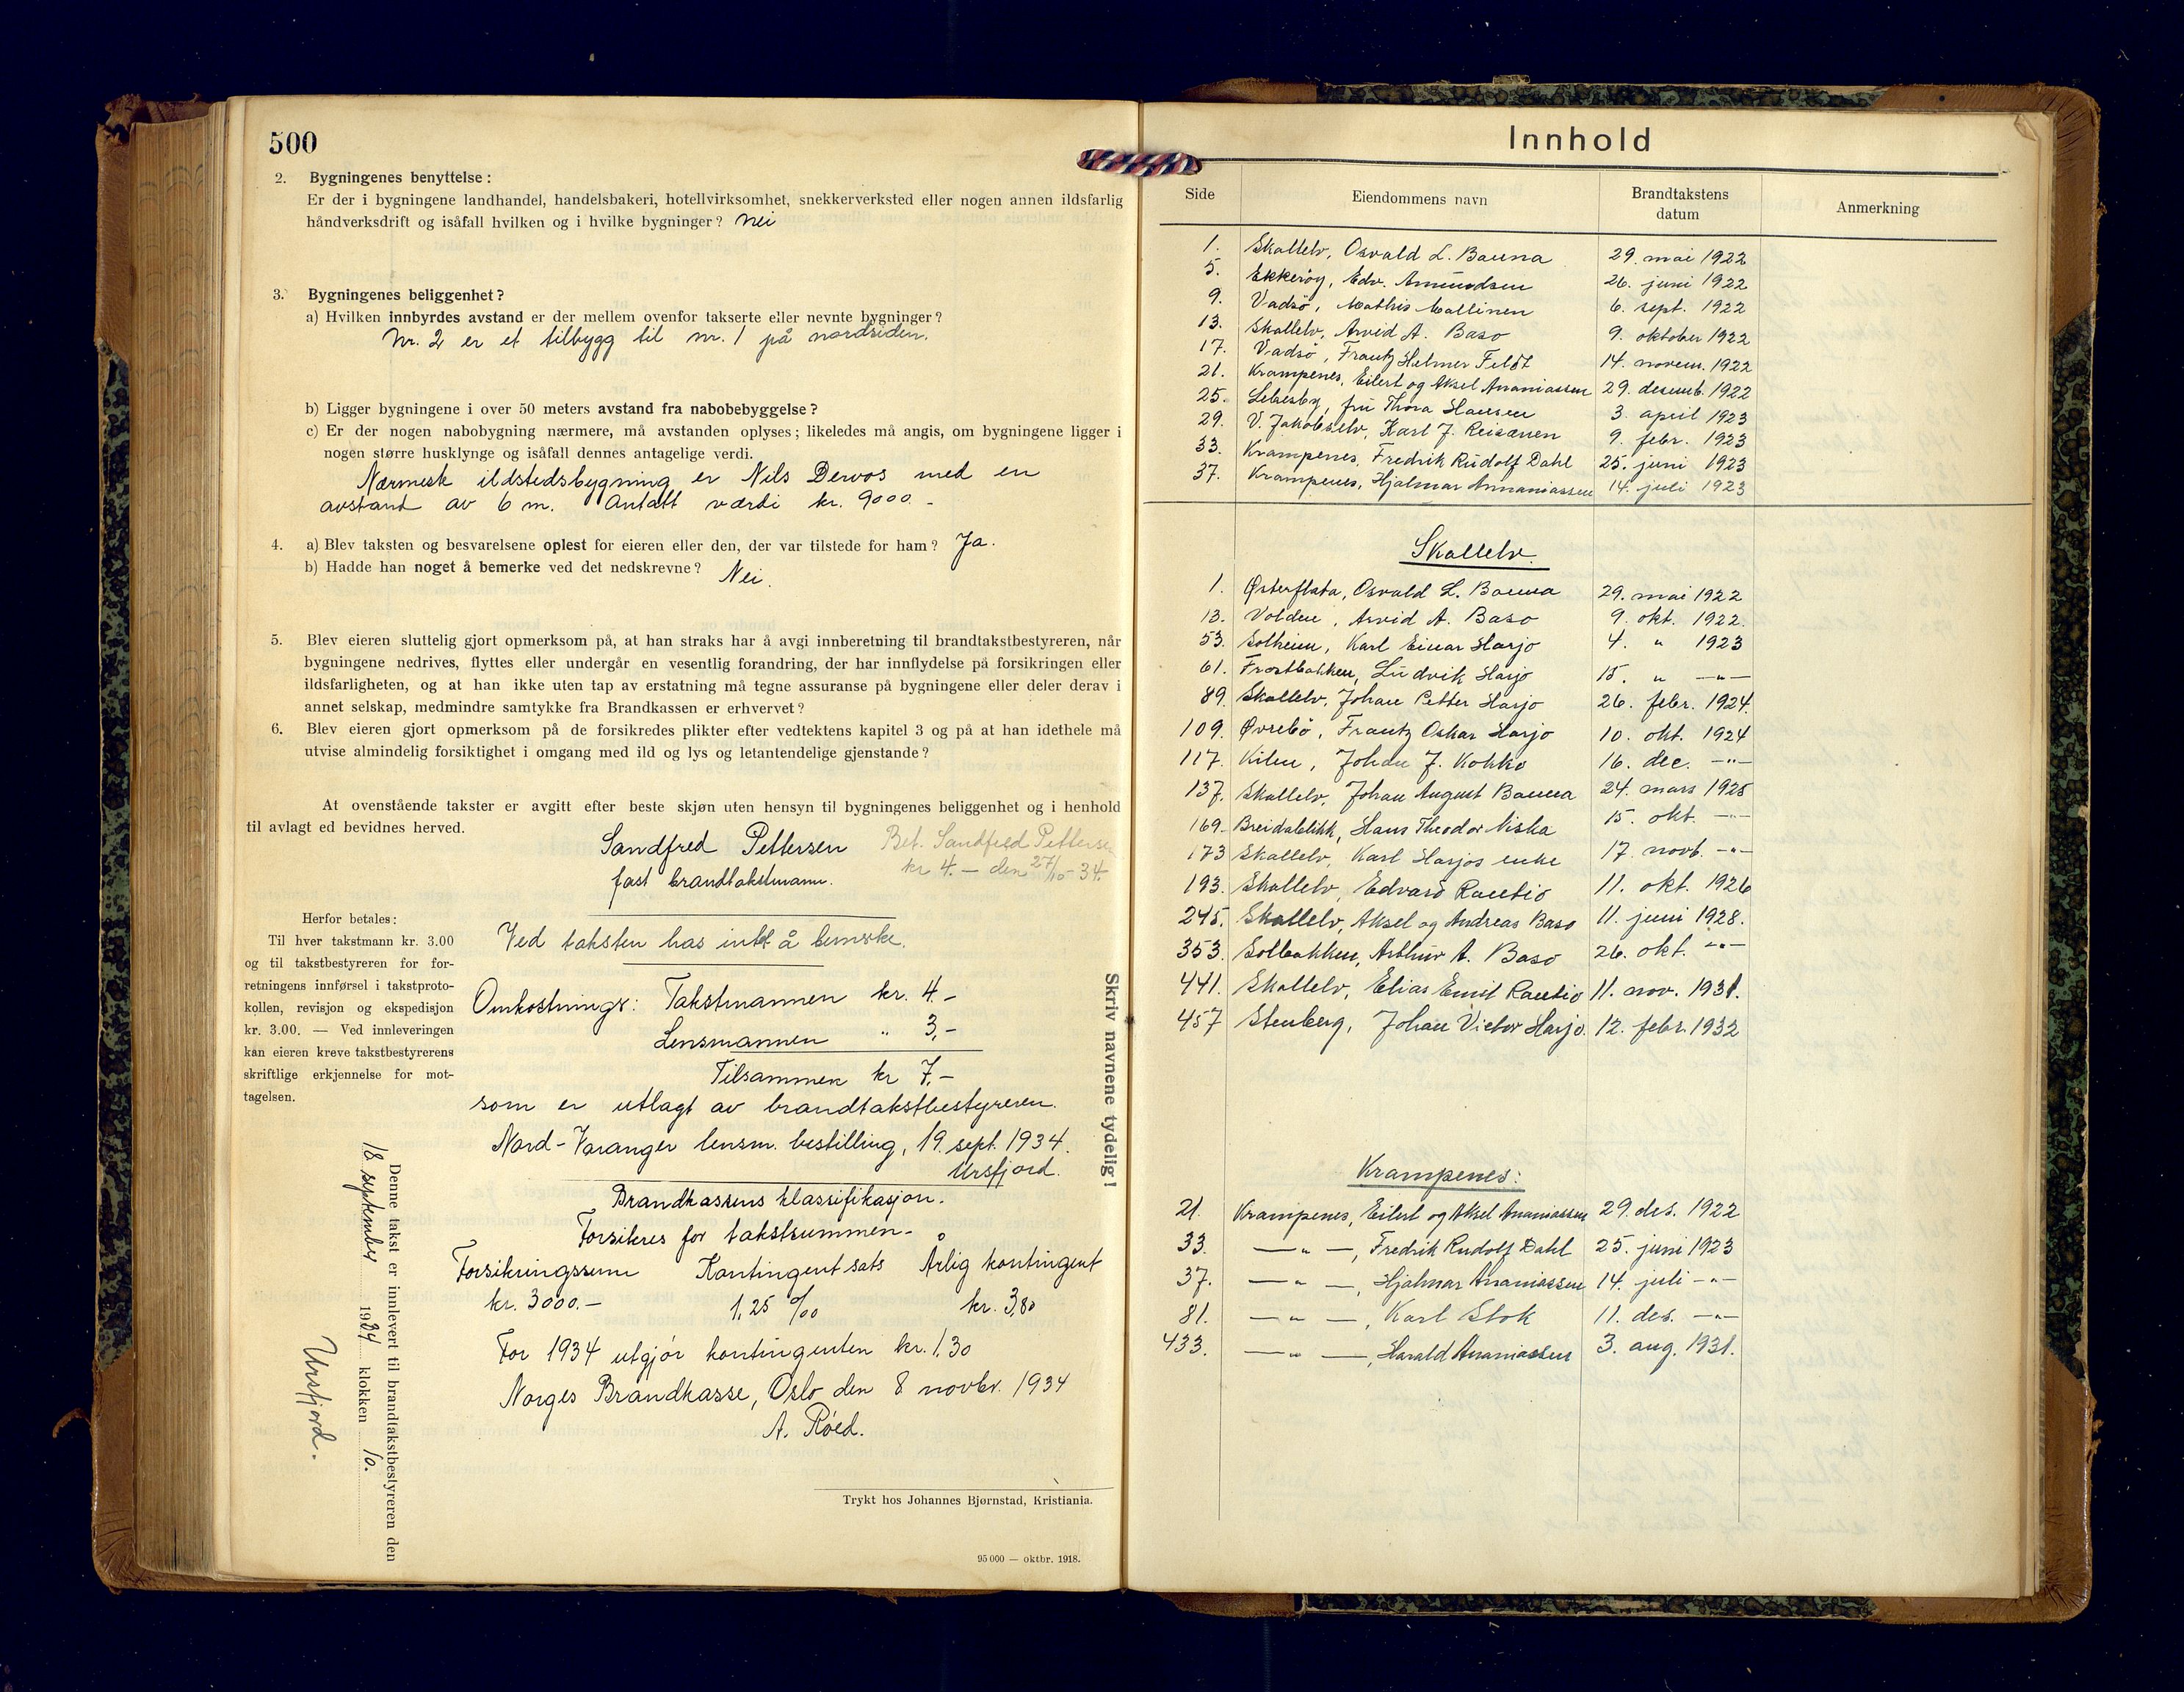 500
2. Bygningenes benyttelse:
Er der i bygningene landhandel, handelsbakeri, hotellvirksomhet, snekkerverksted eller nogen annen ildsfarlig
håndverksdrift og isåfall hvilken og i hvilke bygninger? nei
3. Bygningenes beliggenhet?
a) Hvilken innbyrdes avstand er der mellem ovenfor takserte eller nevnte bygninger?
Nr. 2 er et tilbygg til nr. 1 på nordsiden.
b) Ligger bygningene i over 50 meters avstand fra nabobebyggelse?
c) Er der nogen nabobygning nærmere, må avstanden oplyses; likeledes må angis, om bygningene ligger i
nogen større husklynge og isåfall dennes antagelige verdi.
Nærmest ildstedsbygning er Nils Dervos med en
avstand av 6 m. Antatt værdi kr. 9000.-
4. a) Blev taksten og besvarelsene oplest for eieren eller den, der var tilstede for ham? Ja.
b) Hadde han noget å bemerke ved det nedskrevne? Nei.
5. Blev eieren sluttelig gjort opmerksom på, at han straks har å avgi innberetning til brandtakstbestyreren, når
bygningene nedrives, flyttes eller undergår en vesentlig forandring, der har innflydelse på forsikringen eller
ildsfarligheten, og at han ikke uten tap av erstatning må tegne assuranse på bygningene eller deler derav i
annet selskap, medmindre samtykke fra Brandkassen er erhvervet?
6. Blev eieren gjort opmerksom på de forsikredes plikter efter vedtektens kapitel 3 og på at han idethele må
utvise almindelig forsiktighet i omgang med ild og lys og letantendelige gjenstande?
At ovenstående takster er avgitt efter beste skjøn uten hensyn til bygningenes beliggenhet og i henhold
til avlagt ed bevidnes herved.
Sandfred Pettersen
fast brandtakstmann.
Bet. Sandfred Pettersen
kr 4.- den 27/10-34.
Herfor betales:
Til hver takstmann kr. 3.00
og til takstbestyreren for for-
retningens innførsel i takstproto-
kollen, revisjon og ekspedisjon
kr. 3.00. — Ved innleveringen
kan eieren kreve takstbestyrerens
skriftlige erkjennelse for mot-
tagelsen.
Ved taksten has intet å bemerke.
Omkostninger: Takstmannen kr. 4.-
Lensmannen " 3,-
Tilsammen kr 7,-
som er utlagt av brandtakstbestyreren.
Nord-Varanger lensm. bestilling, 19. sept. 1934.
Ursfjord.
Brandkassens klassifikasjon.
Forsikres for takstsummen.
Forsikringssum Kontingent sats Årlig kontingent
kr. 3000.- 1,25 ‰ kr. 3,80
For 1934 utgjør kontingenten kr. 1,30
Norges Brandkasse, Oslo den 8 novbr. 1934
A. Röed.
Denne takst er innlevert til brandtakstbestyreren den
18 september 1934 klokken 10.
Ursfjord.
Skriv navnene tydelig!
Trykt hos Johannes Bjørnstad, Kristiania.
95 000 — oktbr. 1918.
Innhold
Side Eiendommens navn Brandtakstens datum Anmerkning
1. Skallelv, Osvald L. Bauna 29. mai 1922
5. Ekkeröy, Edv. Amundsen 26. juni 1922
9. Vadsö, Mathis Mallinen 6. sept. 1922
13. Skallelv, Arvid A. Baso 9. oktober 1922
17. Vadsö, Frantz Helmer Feldt 14. novem. 1922
21. Krampenes, Eilert og Aksel Ananiassen 29. desemb. 1922
25. Lebesby, fru Thora Hansen 3. april 1923
29. V. Jakobselv, Karl J. Reisænen 9. febr. 1923
33. Krampenes, Fredrik Rudolf Dahl 25. juni 1923
37. Krampenes, Hjalmar Annaniassen 14. juli 1923
Skallelv.
1. Østerflata, Osvald L. Bauna 29. mai 1922
13. Volden, Arvid A. Baso 9. okt. 1922.
53. Solheim, Karl Einar Harjo 4. " 1923
61. Frostbakken, Ludvik Harjo 15. " —"—
89. Skallelv, Johan Petter Harjo 26. febr. 1924.
109. Øvrebö, Frantz Oskar Harjo 10. okt. 1924
117. Kilen, Johan J. Kohko 16. dec. —"—
137. Skallelv, Johan August Bauna 24. mars 1925
169. Breidablikk, Hans Theodor Niska 15. okt. —"—
173 Skallelv, Karl Harjos enke 17. novb. —"—
193. Skallelv, Edvard Rautio 11. okt. 1926
245. Skallelv, Aksel og Andreas Baso 11. juni 1928.
353. Solbakken, Arthur A. Baso 26. okt. —"—
441. Skallelv, Elias Emil Rautio 11. nov. 1931.
457 Stenberg, Johan Victor Harjo. 12. febr. 1932
Krampenes:
21. Krampenes, Eilert og Aksel Ananiassen 29. des. 1922
33. —"—, Fredrik Rudolf Dahl 25. juni 1923
37. —"—, Hjalmar Ananiassen 14. juli —"—
81. —"—, Karl Stok 11. des. —"—
433. —"—, Harald Ananiassen 3. aug. 1931.